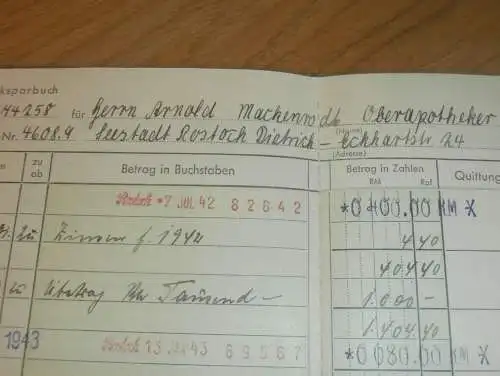 ksparbuch
44258 für Herrn Arnold Machenrodt Oberapotheker
(Name)
Nr. 4608.9 Seestadt Rostock Dietrich-Eckhartstr 24
(Adresse)
zu ab Betrag in Buchstaben Betrag in Zahlen RM Rpf Quittung
Rostock *7 JUL 42 82642 *0400.00 RM
zu Zinsen f. 1942 4 40
404 40
zu Übertrag Tausend - 1000 -
1404.40
1943 Rostock 13 43 69567 *0080.00 RM